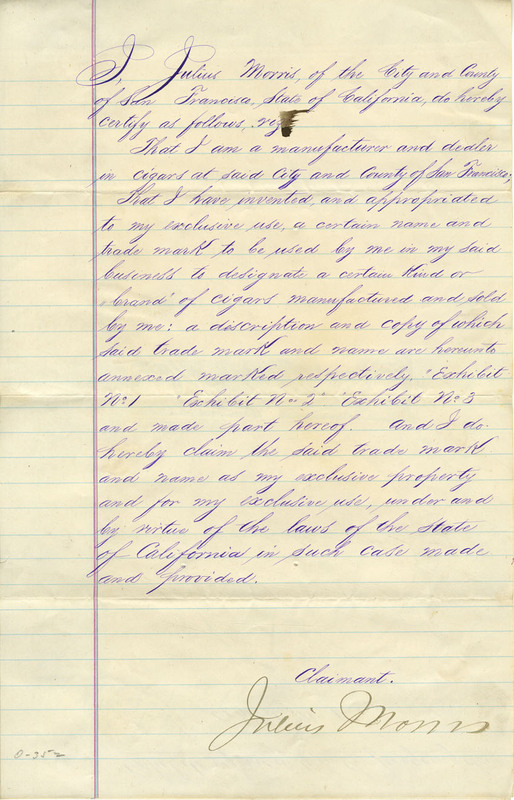 I, Julius Morris, of the City and County
of San Francisco, State of California, do hereby
certify as follows, viz
That I am a manufacturer and dealer
in cigars at said City and County of San Francisco;
That I have invented, and appropriated
to my exclusive use, a certain name and
trade mark to be used by me in my said
business to designate a certain kind or
"brand" of cigars manufactured and sold
by me: a description and copy of which
said trade mark and name are hereunto
annexed marked respectively, "Exhibit
No 1" "Exhibit No 2" "Exhibit No 3
and made part hereof. And I do
hereby claim the said trade mark
and name as my exclusive property
and for my exclusive use, under and
by virtue of the laws of the State
of California in such case made
and provided.
Claimant.
Julius Morris
0-352